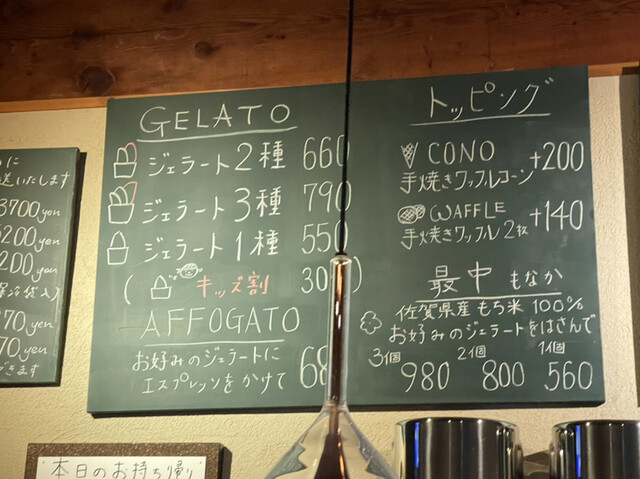 GELATO
ジェラート2種 660
ジェラート3種 790
ジェラート1種 550
( キッズ割 )
AFFOGATO
お好みのジェラートに
エスプレッソをかけて
トッピング
CONO +200
手焼きワッフルコーン
WAFFLE +140
手焼きワッフル2枚
最中 もなか
佐賀県産もち米100%
お好みのジェラートをはさんで
3個 2個 1個
980 800 560
送いたします
3700yen
200yen
200yen
70yen
70yen
本日のお持ち帰り